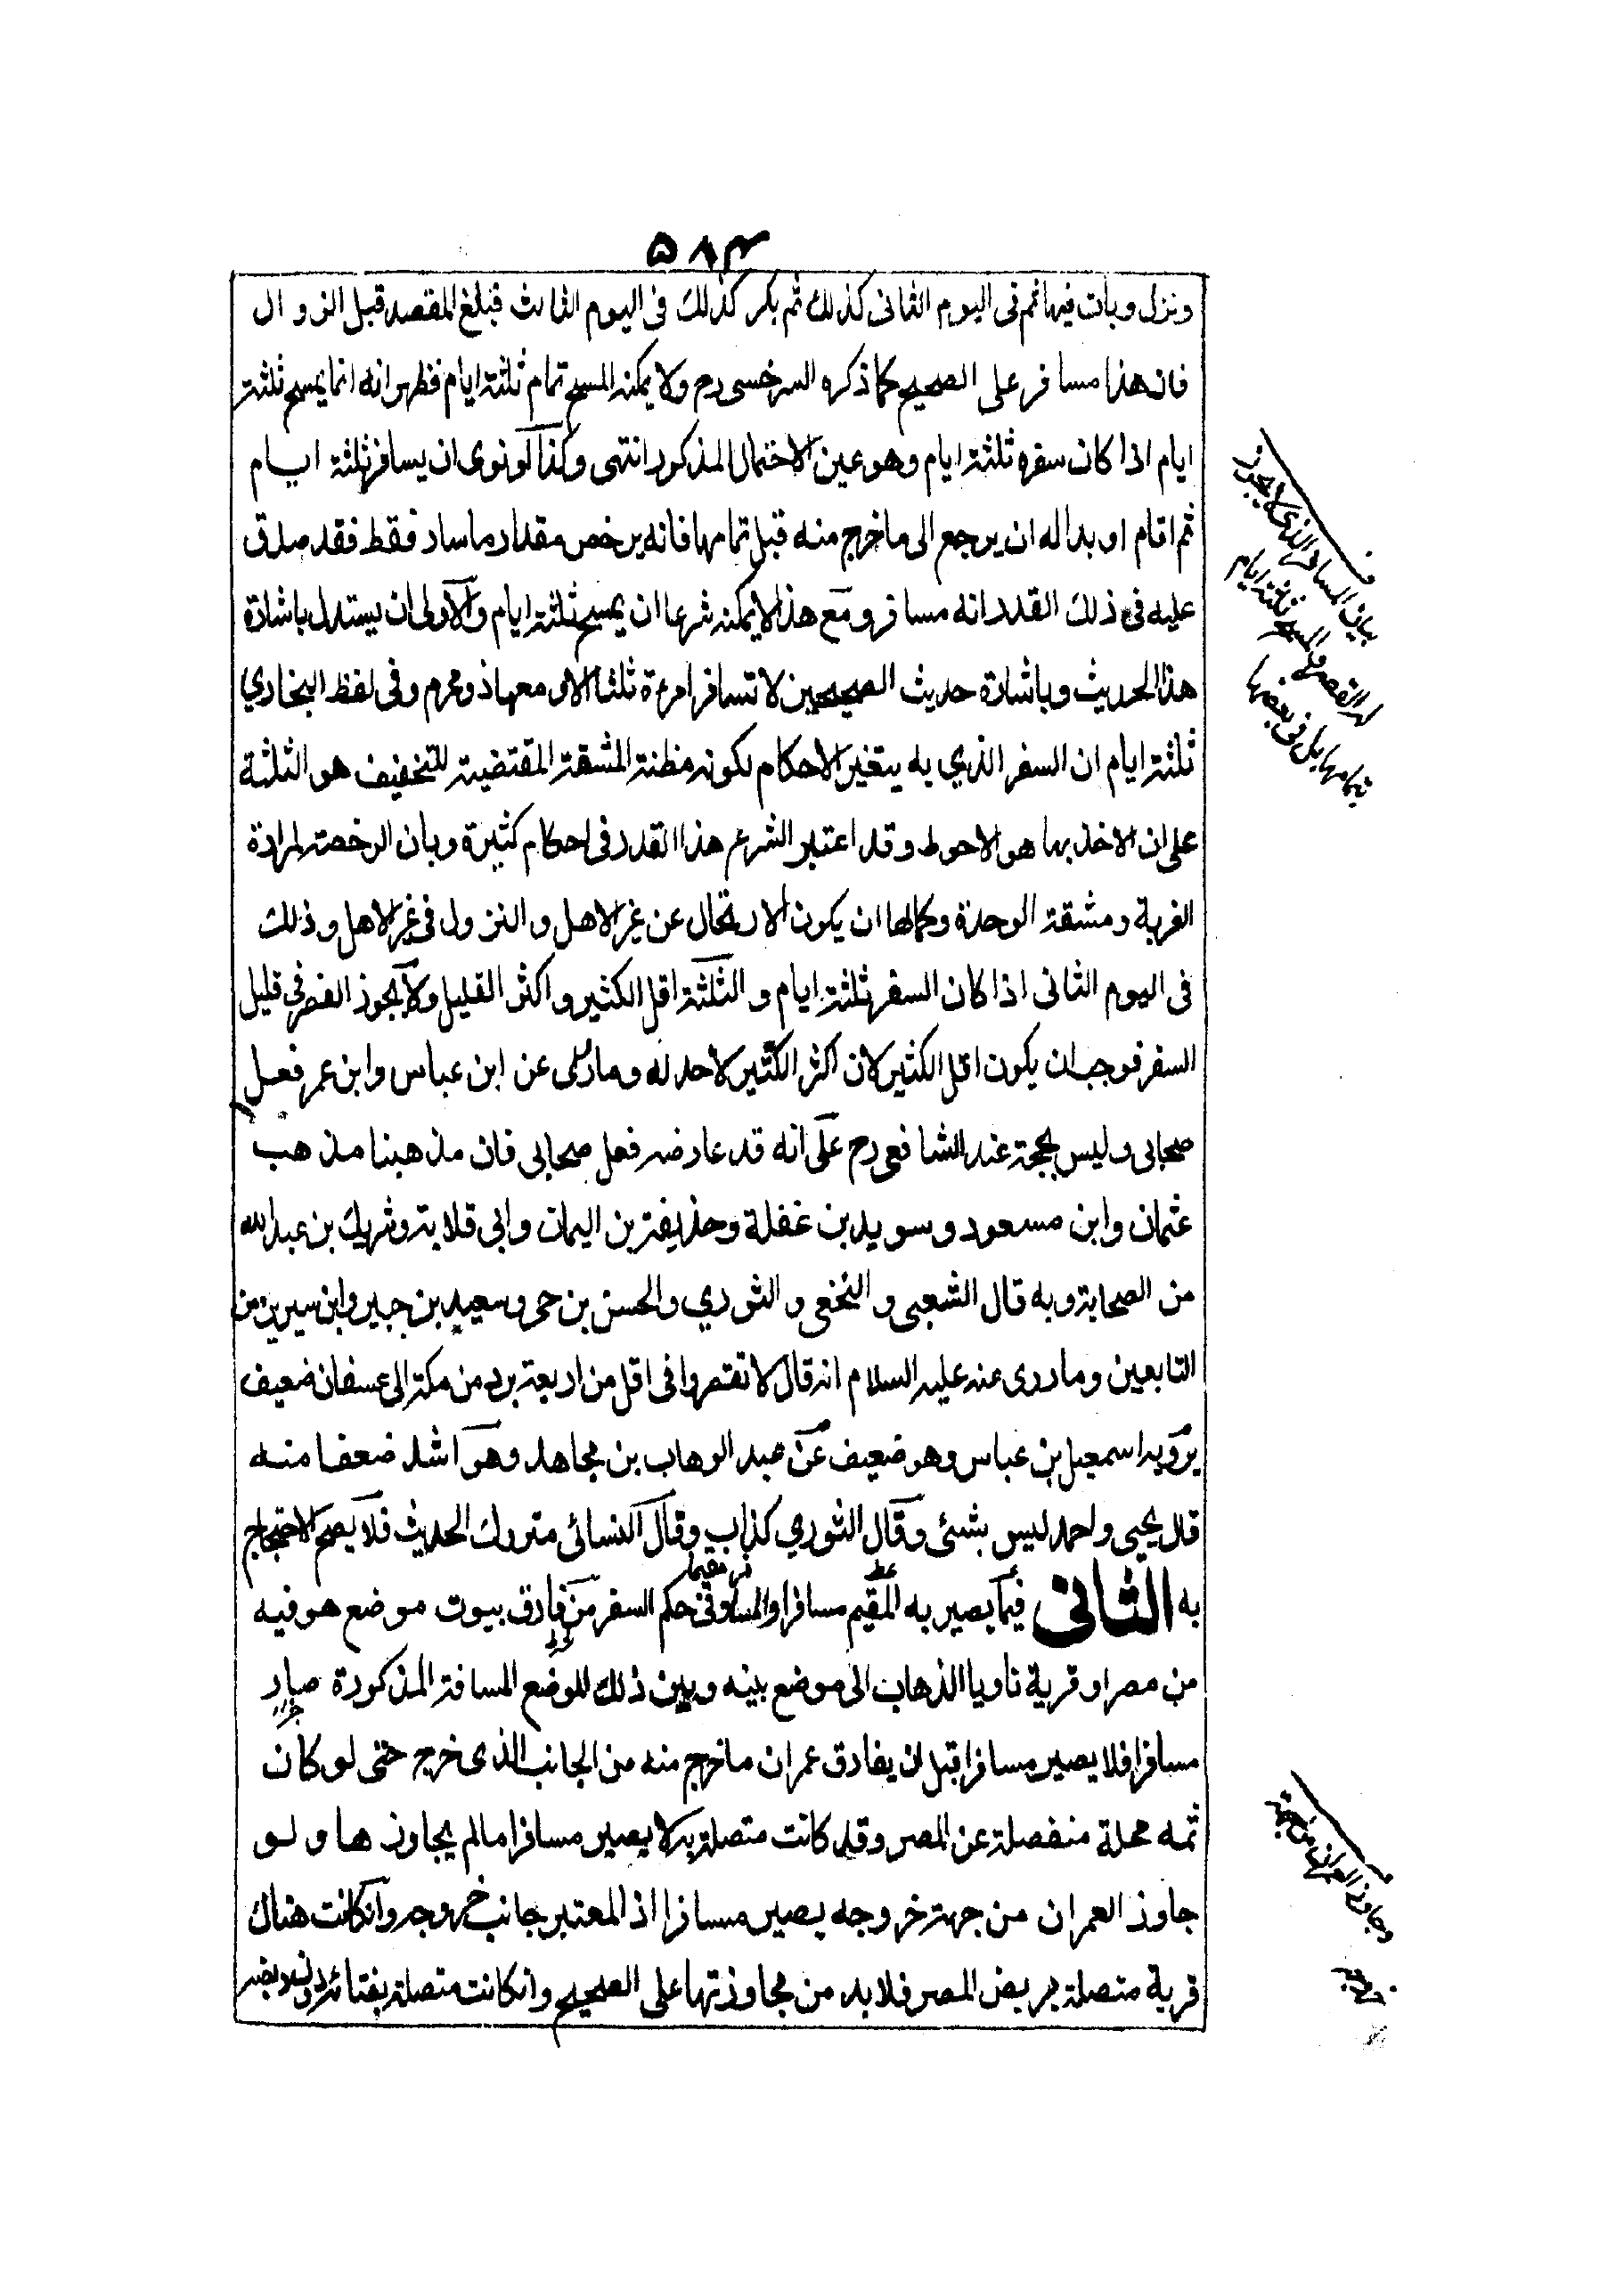 ۵۸۴
ونزل وبات فيها ثم فى اليوم الثانى كذلك ثم بكر كذلك فى اليوم الثالث فبلغ المقصد قبل الزوال
فان هذا مسافر على الصحيح كما ذكره السرخسى رح ولا يمكنه المسح تمام ثلثة ايام فظهر انه انما يمسح ثلثة
ايام اذا كان سفره ثلثة ايام وهو عين الاحتمال المذكور انتهى وكذا لو نوى ان يسافر ثلثة ايام
ثم اقام او بدا له ان يرجع الى ما خرج منه قبل تمامها فانه يرخص مقدار ما سار فقط فقد صدق
عليه فى ذلك القدر انه مسافر ومع هذا لا يمكنه شرعا ان يمسح ثلثة ايام والاولى ان يستدل باشارة
هذا الحديث وباشارة حديث الصحيحين لا تسافر امرءة ثلثا الا و معها ذو محرم وفى لفظ البخاري
ثلثة ايام ان السفر الذي به يتغير الاحكام لكونه مظنة المشقة المقتضية للتخفيف هو الثلثة
على ان الاخذ بها هو الاحوط وقد اعتبر الشرع هذا القدر فى احكام كثيرة وبان الرخصة لمرارة
الغربة ومشقة الوحدة وكمالها ان يكون الارتحال عن غير الاهل والنزول فى غير الاهل وذلك
فى اليوم الثانى اذا كان السفر ثلثة ايام والثلثة اقل الكثير واكثر القليل ولا يجوز القصر فى قليل
السفر فوجب ان يكون اقل الكثير لان اكثر الكثير لا حد له وما روى عن ابن عباس وابن عمر فعل
صحابى وليس بحجة عند الشافعى رح على انه قد عارضه فعل صحابى فان مذهبنا مذهب
عثمان وابن مسعود وسويد بن غفلة وحذيفة بن اليمان وابى قلابة وشريك بن عبد الله
من الصحابة وبه قال الشعبى و النخعى و الثوري والحسن بن حى وسعيد بن جبير وابن سيرين من
التابعين وما روى عنه عليه السلام انه قال لا تقصروا فى اقل من اربعة برد من مكة الى عسفان ضعيف
يرويه اسمعيل بن عياس وهو ضعيف عن عبد الوهاب بن مجاهد وهو اشد ضعفا منه
قال يحيى واحمد ليس بشئ وقال الثوري كذاب وقال النسائى متروك الحديث فلا يصح الاحتجاج
به الثانى فيما يصير به المقيم مسافرا والمسافر مقيما وفى حكم السفر من فارق بيوت موضع هو فيه
من مصر او قرية ناويا الذهاب الى موضع بينه وبين ذلك الموضع المسافة المذكورة صار
مسافرا فلا يصير مسافرا قبل ان يفارق عمران ما خرج منه من الجانب الذى خرج حتى لو كان
ثمه محلة منفصلة عن المصر وقد كانت متصلة به لا يصير مسافرا ما لم يجاوزها ولو
جاوز العمران من جهة خروجه يصير مسافرا اذ المعتبر جانب خروجه وان كانت هناك
قرية متصلة بربض المصر فلا بد من مجاوزتها على الصحيح وان كانت متصلة بفنائه
بيان المسافر الذى لا يجوز
له القصر والمسح ثلثة ايام
تمامها بل فى بعضها
وجاوز العمران من جهة
خروجه